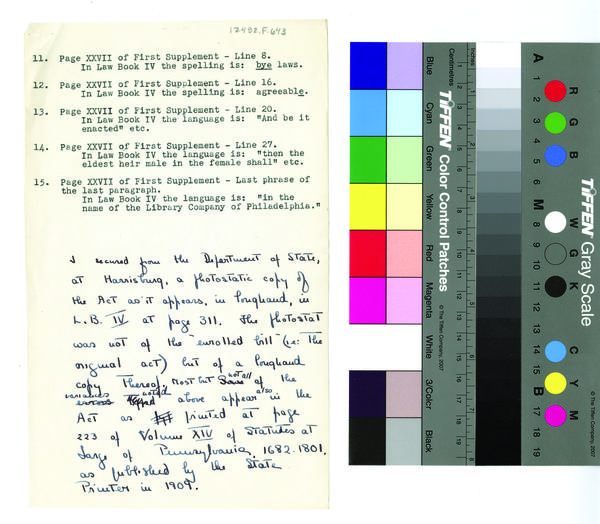 12492.F-643
11. Page XXVII of First Supplement - Line 8.
In Law Book IV the spelling is: bye laws.
12. Page XXVII of First Supplement - Line 16.
In Law Book IV the spelling is: agreeable.
13. Page XXVII of First Supplement - Line 20.
In Law Book IV the language is: "And be it
enacted" etc.
14. Page XXVII of First Supplement - Line 27.
In Law Book IV the language is: "then the
eldest heir male in the female shall" etc.
15. Page XXVII of First Supplement - Last phrase of
the last paragraph.
In Law Book IV the language is: "in the
name of the Library Company of Philadelphia."
I secured from the Department of State,
at Harrisburg, a photostatic copy of
the Act as it appears, in longhand, in
L.B. IV at page 311. The photostat
was not of the enrolled bill (i.e. the
original act) but of a longhand
copy thereof. Most but not all of the
variances noted above appear in the
Act as printed at page
223 of Volume XIV of Statutes at
Large of Pennsylvania, 1682-1801,
as published by the State
Printer in 1909.
Blue
Cyan
Green
Yellow
Red
Magenta
White
3/Color
Black
Centimetres
Inches
TIFFEN Color Control Patches
© The Tiffen Company, 2007
TIFFEN Gray Scale
© The Tiffen Company, 2007
A
1
2
3
4
5
6
M
8
9
10
11
12
13
14
15
B
17
18
19
R
G
B
W
G
K
C
Y
M